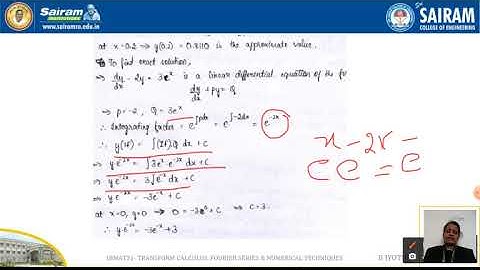 Sairam
INSTITUTIONS
www.sairamgroup.edu.in
Sri
SAIRAM
COLLEGE OF ENGINEERING
at x=0.2 ⇒ y(0.2) = 0.8110 is the approximate value.
To find exact solution,
⇒ dy/dx - 2y = 3e^x is a linear differential equation of the
dy/dx + py = Q
⇒ p = -2, Q = 3e^x
∴ Integrating factor = e^∫pdx = e^∫-2dx = e^-2x
∴ y(IF) = ∫(IF).Q dx + C
⇒ y.e^-2x = ∫3e^x.e^-2x dx + C
⇒ y.e^-2x = 3∫e^-x dx + C
⇒ y.e^-2x = -3e^-x + C
at x=0, y=0 ⇒ 0 = -3e^0 + C ⇒ C = 3.
∴ y.e^-2x = -3e^-x + 3
x -2x -
e e = e
TRANSFORM CALCULUS, FOURIER SERIES & NUMERICAL TECHNIQUES